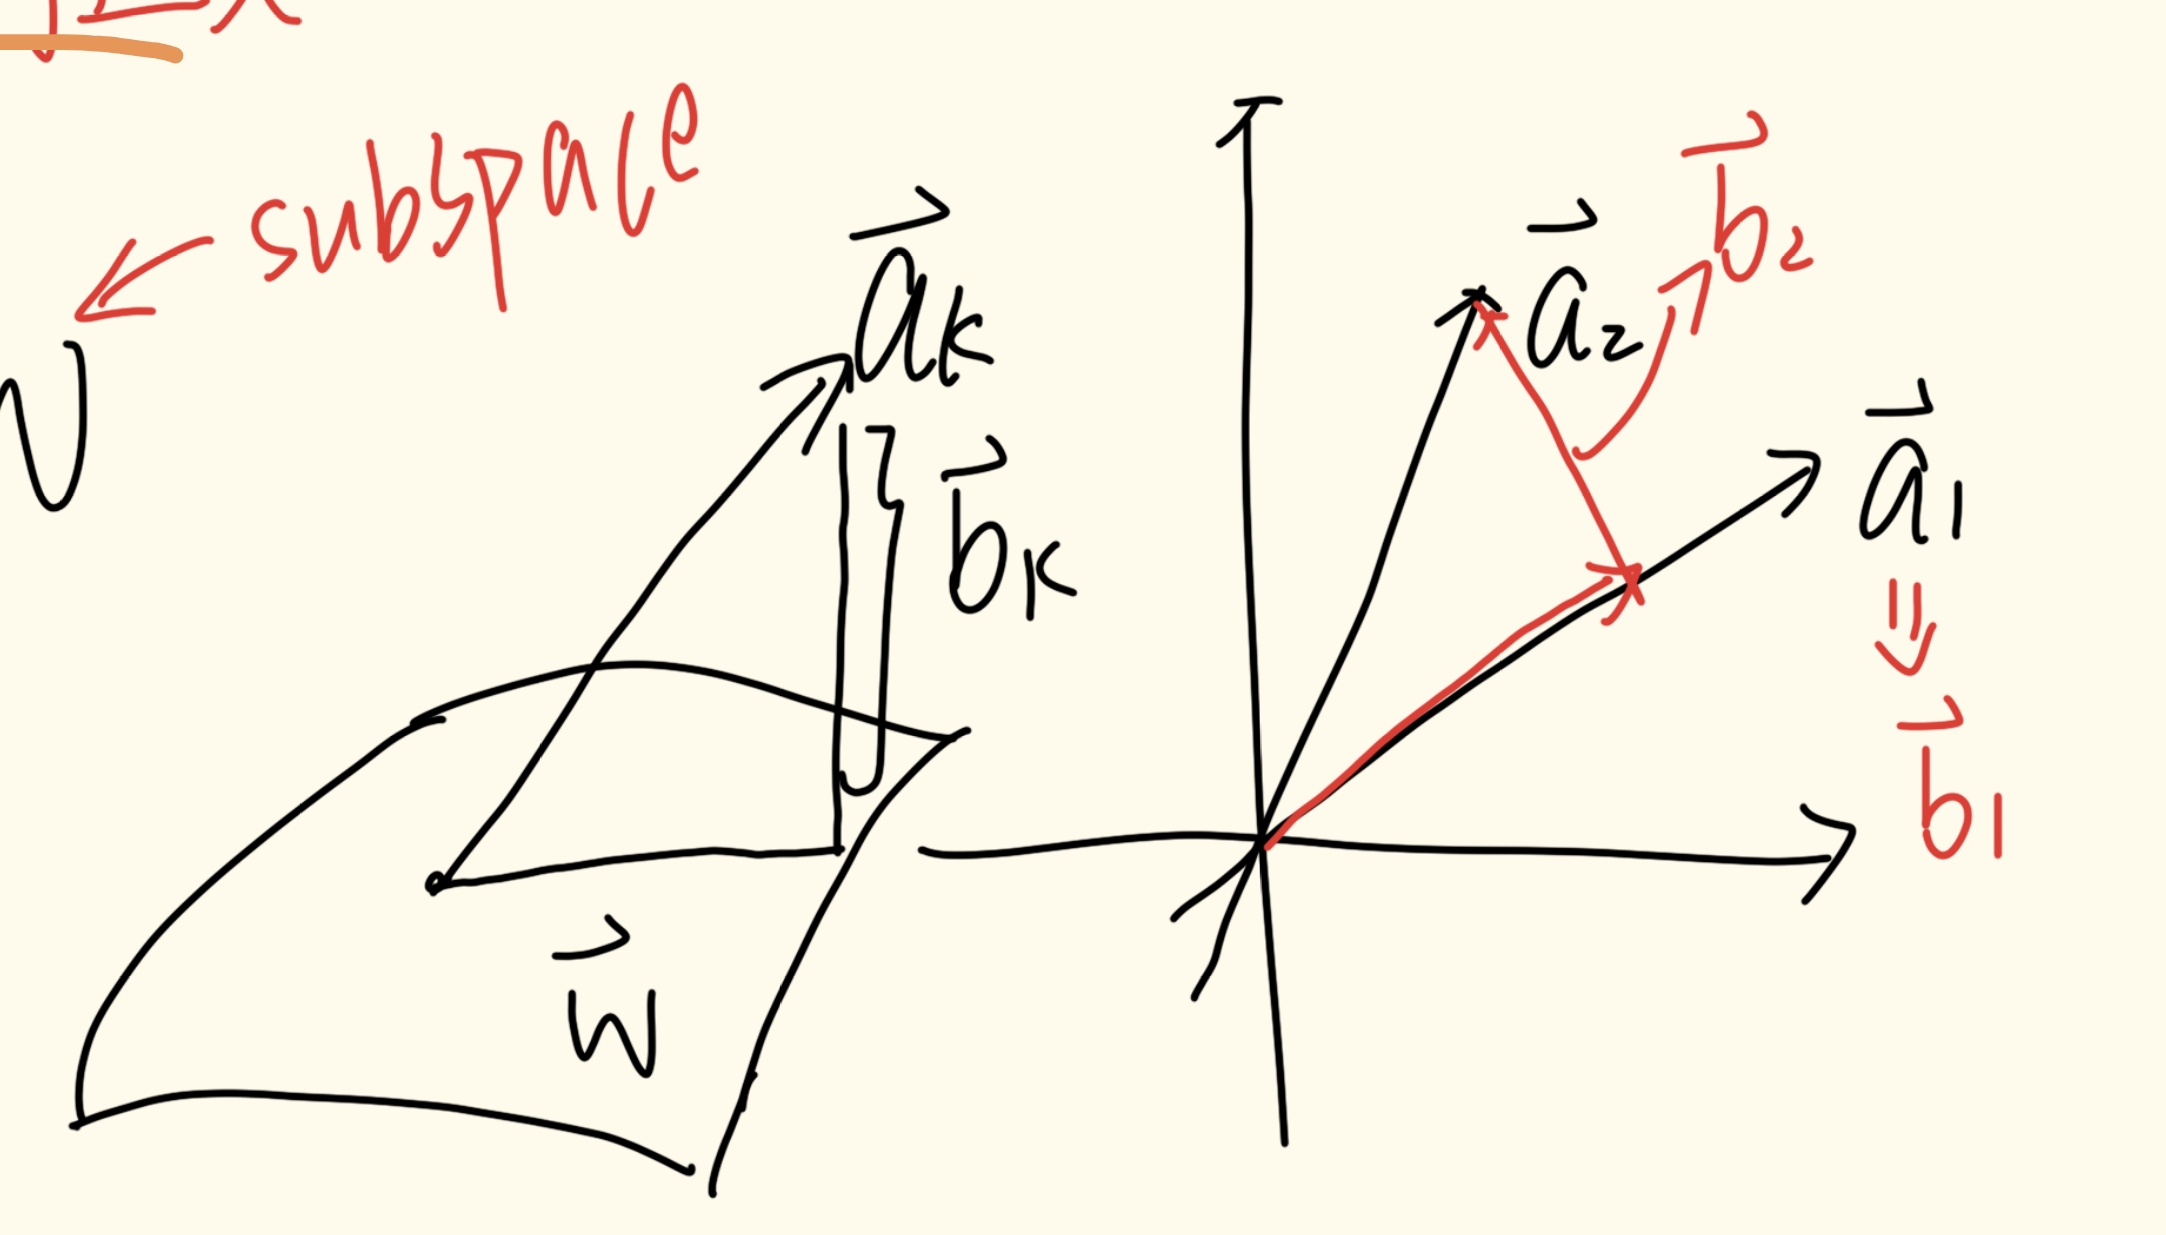 subspace
a⃗k
b⃗k
w⃗
a⃗2
b⃗2
a⃗1
=
b⃗1